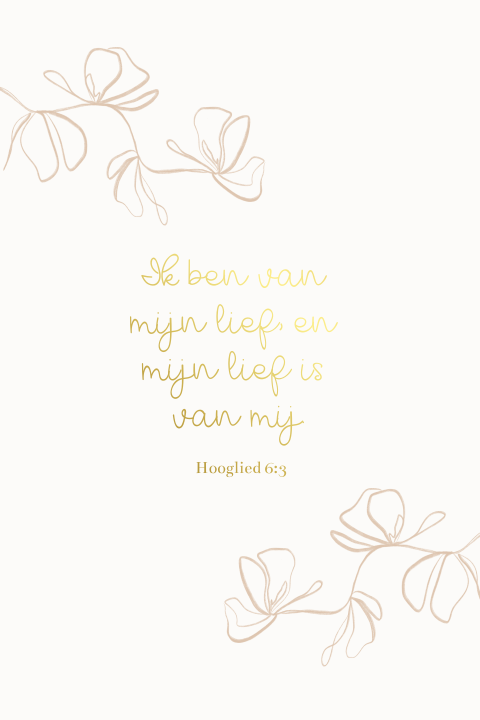 Ik ben van
mijn lief, en
mijn lief is
van mij.
Hooglied 6:3